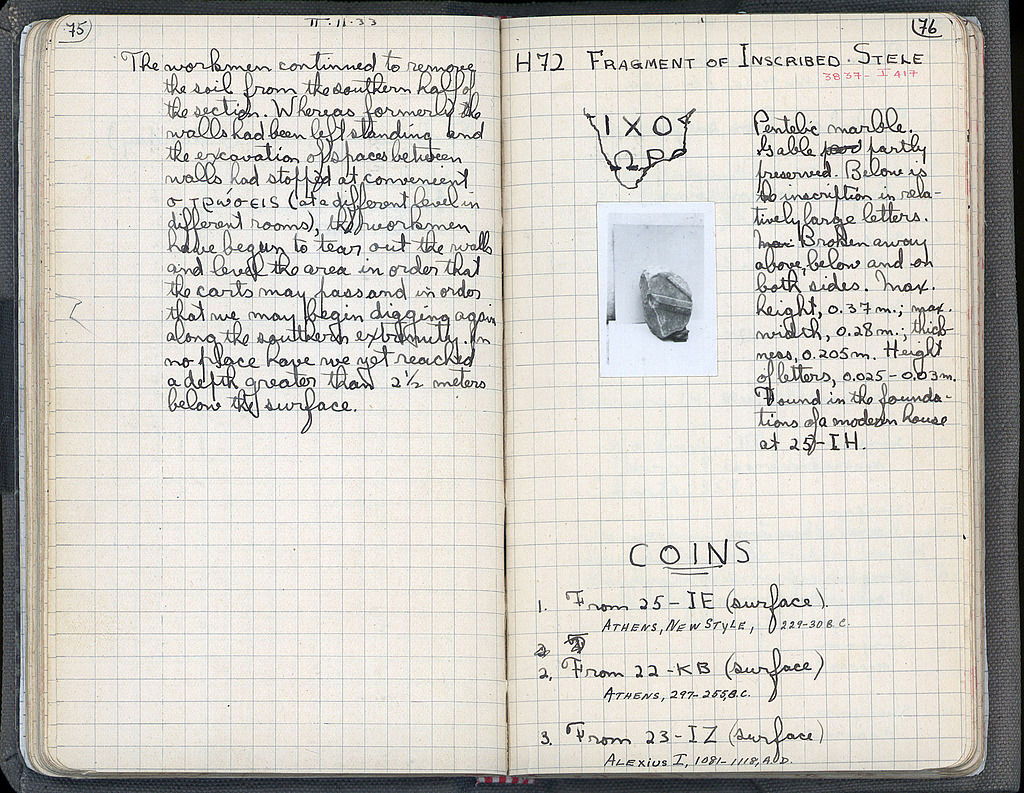 75
II·11·33
The workmen continued to remove
the soil from the southern half of
the section. Whereas formerly the
walls had been left standing and
the excavation of spaces between
walls had stopped at convenient
στρώσεις (at a different level in
different rooms), the workmen
have begun to tear out the walls
and level the area in order that
the carts may pass and in order
that we may begin digging again
along the southern extremity. In
no place have we yet reached
a depth greater than 2½ meters
below the surface.
76
H72 FRAGMENT OF INSCRIBED STELE
3837- I 417
ΙΧΟ
ΩΡΟ
Pentelic marble.
Gable partly
preserved. Below is
inscription in rela-
tively large letters.
Broken away
above, below and on
both sides. Max.
height, 0.37 m.; max.
width, 0.28 m.; thick-
ness, 0.205 m. Height
of letters, 0.025-0.03 m.
Found in the founda-
tions of a modern house
at 25-ΙΗ.
COINS
1. From 25-ΙΕ (surface).
ATHENS, NEW STYLE, 229-30 B.C.
2. From 22-ΚΒ (surface)
ATHENS, 297-255, B.C.
3. From 23-ΙΖ (surface)
ALEXIUS I, 1081-1118, A.D.